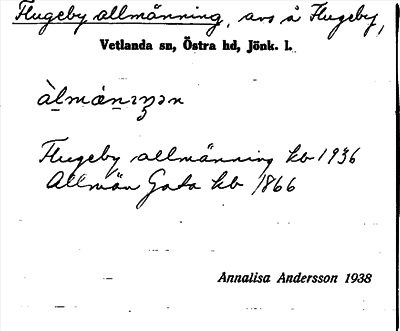 Flugeby allmänning, avs å Flugeby,
Vetlanda sn, Östra hd, Jönk. l.
Flugeby allmänning kb 1936
Allmän Gata kb 1866
Annalisa Andersson 1938